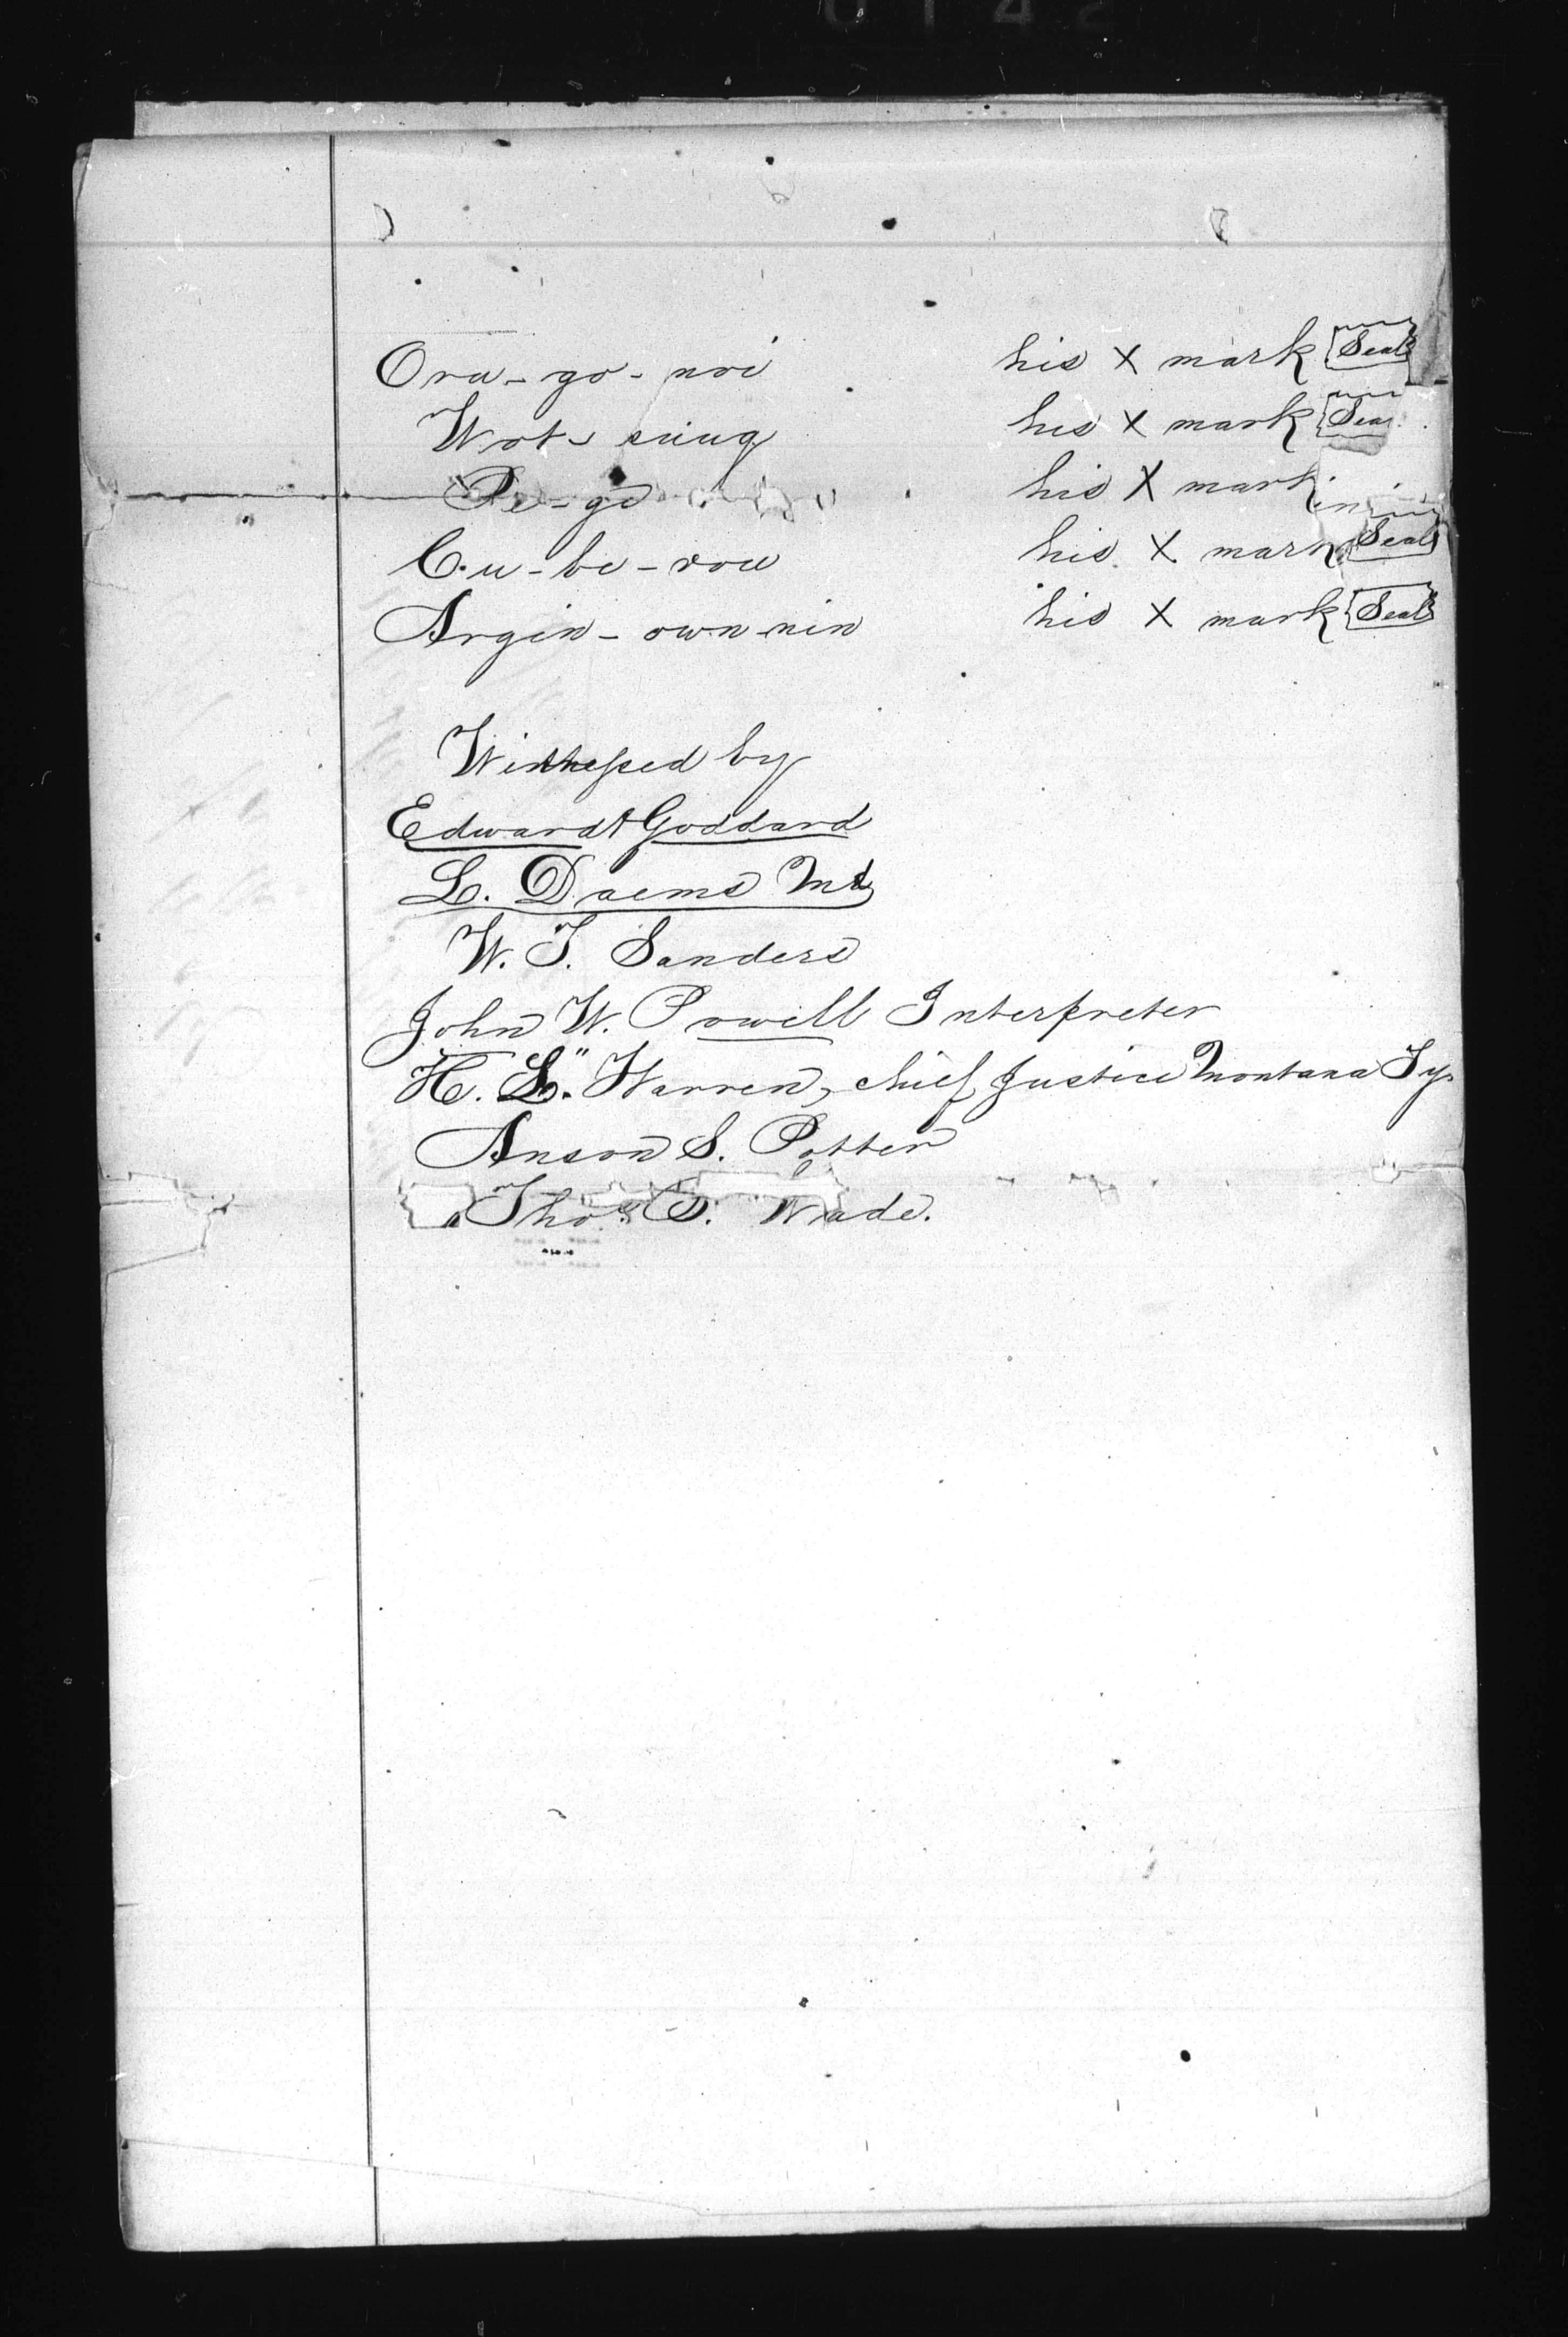 0142
Ora-go-noi his X mark Seal
Wot-suug his X mark Sea
Pe-ge his X mark
Cu-be-rou his X mark Seal
Argin-own-nin his X mark Seal
Witnessed by
Edward A Goddard
L. Daems Md
W. F. Sanders
John W. Powell Interpreter
H. L. Warren, chief Justice Montana Ty
Anson S. Potter
Thos. S. Wade.